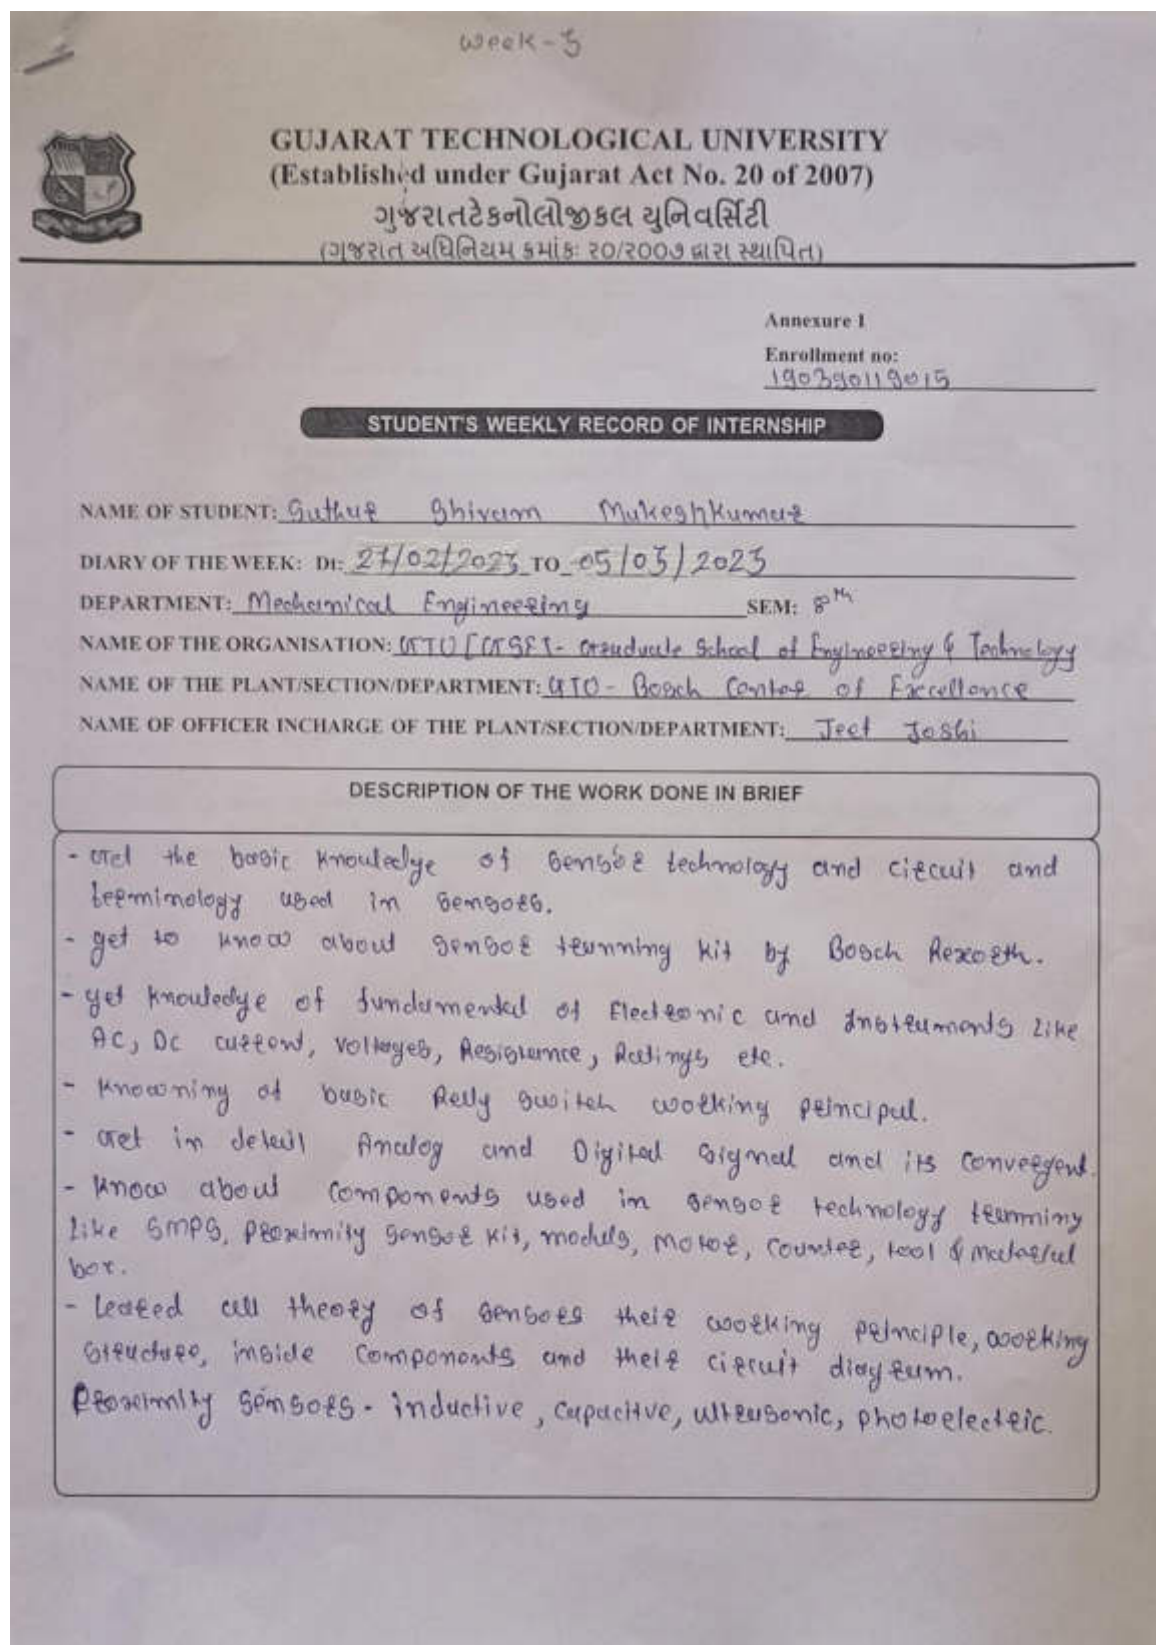 Week-3
GUJARAT TECHNOLOGICAL UNIVERSITY
(Established under Gujarat Act No. 20 of 2007)
ગુજરાતટેકનોલોજીકલ યુનિવર્સિટી
(ગુજરાત અધિનિયમ ક્રમાંકઃ ૨૦/૨૦૦૭ દ્વારા સ્થાપિત)
Annexure 1
Enrollment no:
190390119015
STUDENT'S WEEKLY RECORD OF INTERNSHIP
NAME OF STUDENT: Suthar Shivam Mukeshkumar
DIARY OF THE WEEK: Dt: 27/02/2023 TO 05/03/2023
DEPARTMENT: Mechanical Engineering SEM: 8th
NAME OF THE ORGANISATION: GTU [GSET- Graduate School of Engineering & Technology
NAME OF THE PLANT/SECTION/DEPARTMENT: GTU - Bosch Center of Excellance
NAME OF OFFICER INCHARGE OF THE PLANT/SECTION/DEPARTMENT: Jeet Joshi
DESCRIPTION OF THE WORK DONE IN BRIEF
- Get the basic knowledge of sensor technology and circuit and
terminology used in sensors.
- get to know about sensor trainning kit by Bosch Rexorth.
- get knowledge of fundamental of Electronic and Instruments like
AC, DC current, Voltages, Resistance, Ratings etc.
- Knowning of basic Relly switch working principal.
- Get in detail Analog and Digital signal and its convergent.
- Know about components used in sensor technology tranning
like SMPS, Proximity sensor kit, moduls, motor, counter, tool & material
box.
- Leared all theory of sensors their working principle, working
structure, inside components and their circuit diagram.
Proximity sensors - inductive, capacitve, ultrasonic, photoelectric.